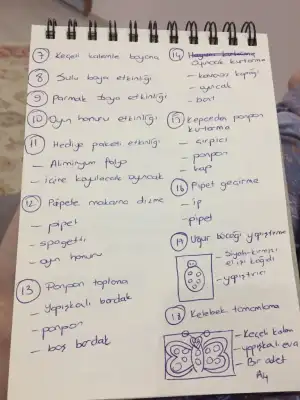 7 Keçeli kalemle boyama
8 Sulu boya etkinliği
9 Parmak boya etkinliği
10 Oyun hamuru etkinliği
11 Hediye paketi etkinliği
- Aliminyum folyo
- içine koyulacak oyuncak
12 Pipete makarna dizme
- pipet
- spagetti
- oyn hamuru
13 Ponpon toplama
- Yapışkalı bardak
- ponpon
- boş bardak
14
Oyuncak kurtarma
- kavanoz kapağı
- oyuncak
- bant
15 Kepceden ponpon kurtarma
- çırpıcı
- ponpon
- kap
16 Pipet geçirme
- ip
- pipet
17 Uğur böceği yapıştırma
- Siyah-kırmızı
el işi kağıdı
- yapıştırıcı
18 Kelebek tamamlama
- Keçeli kalem
- yapışkalı eva
- Bir adet
A4